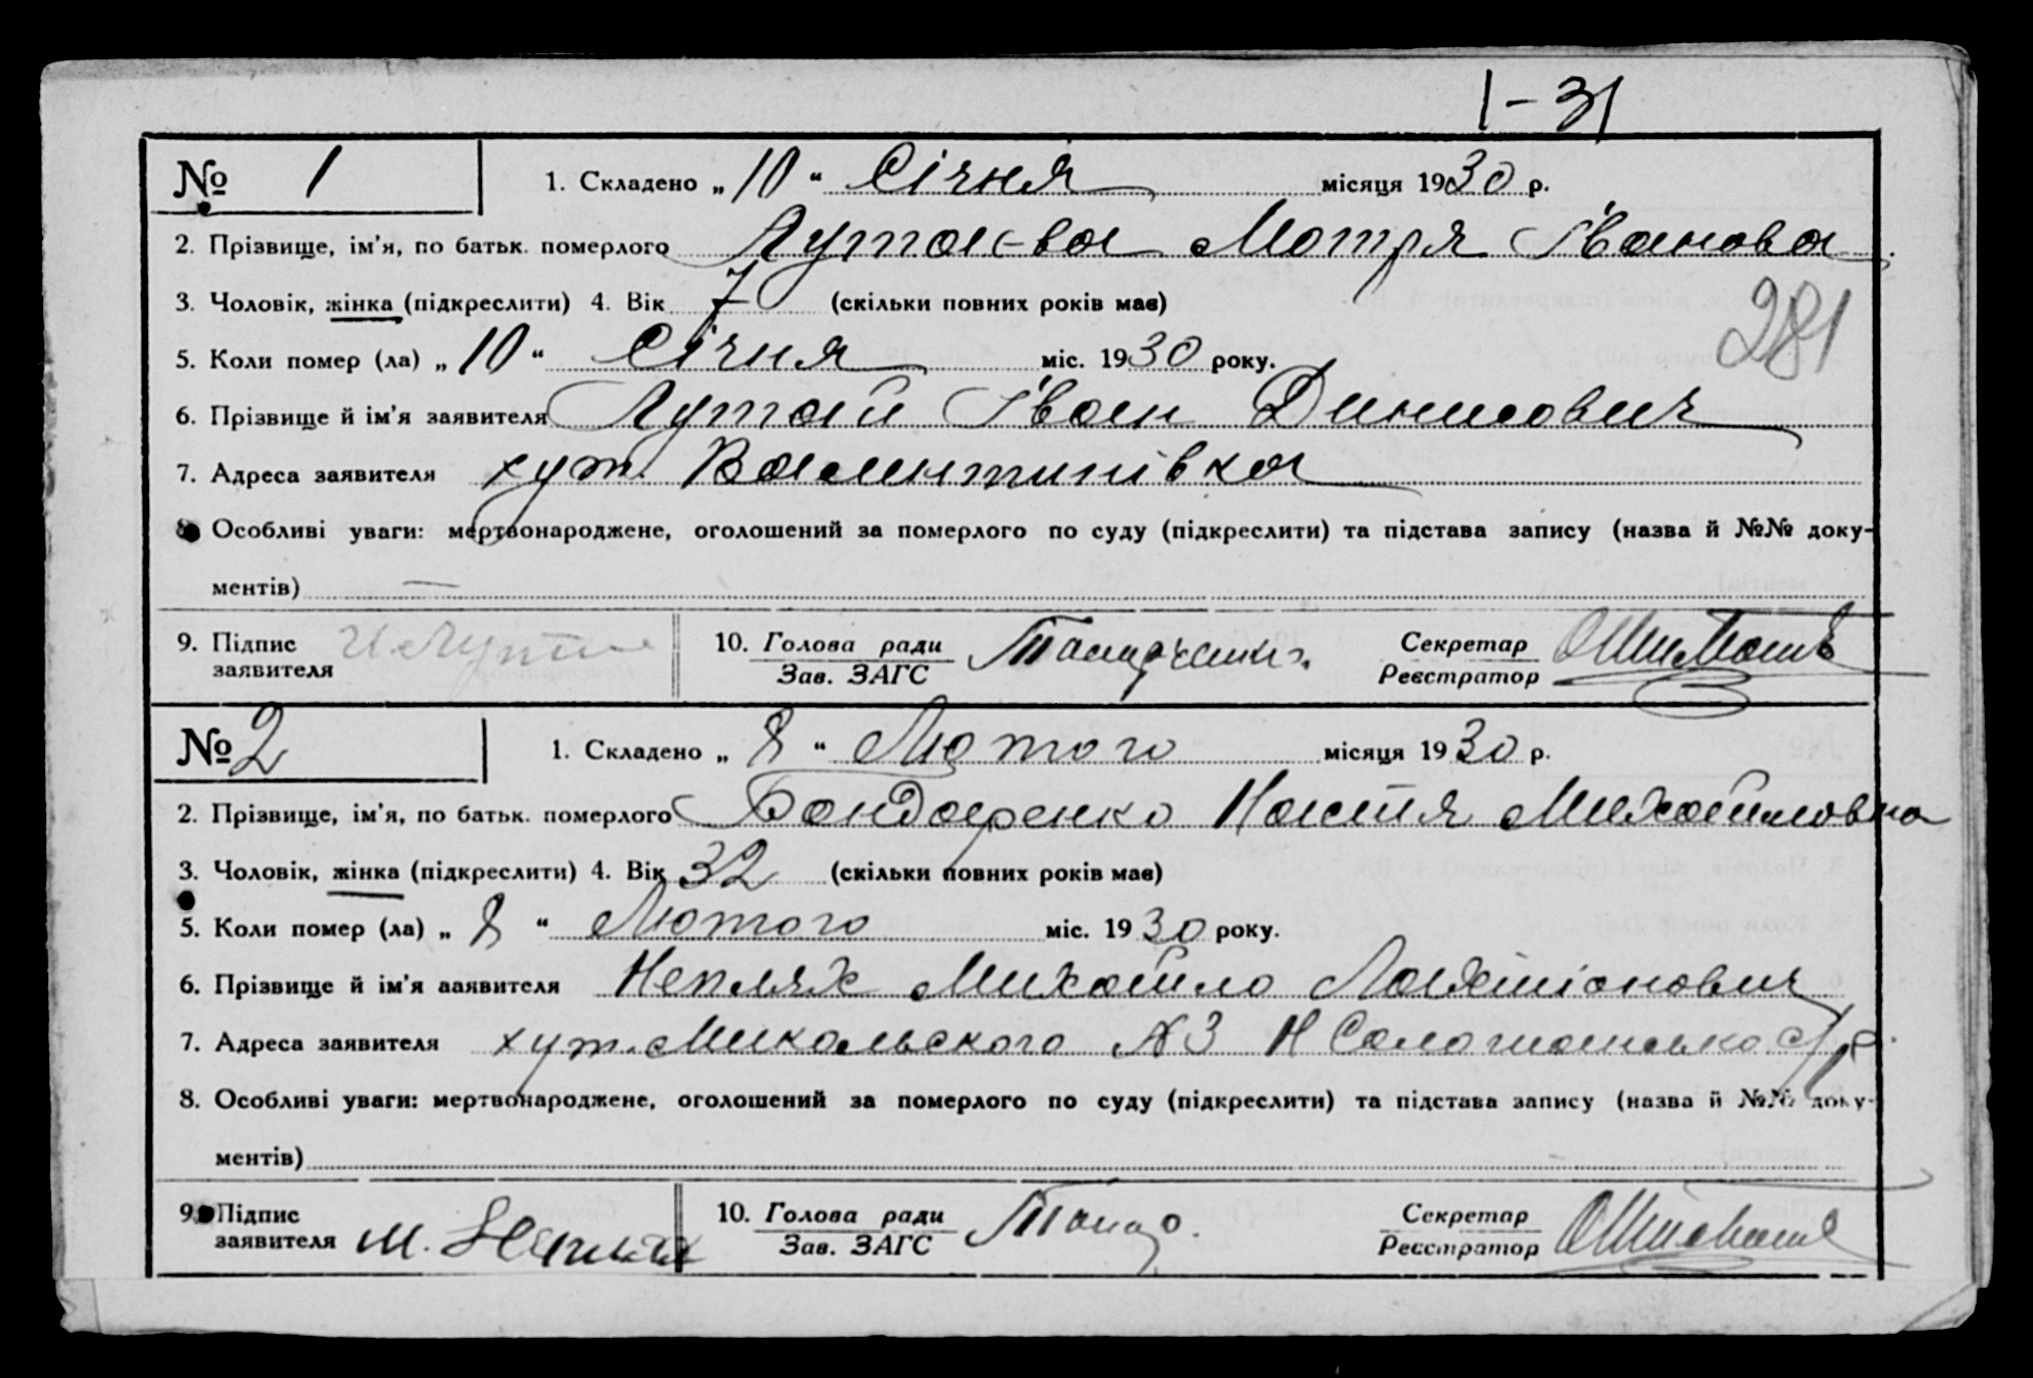 1-31
№ 1 1. Складено „ 10 “ Січня місяця 1930 р.
2. Прізвище, ім'я, по батьк. померлого Лутаєва Мотря Іванова
3. Чоловік, жінка (підкреслити) 4. Вік 7 (скільки повних років має)
281
5. Коли помер (ла) „ 10 “ Січня міс. 1930 року.
6. Прізвище й ім'я заявителя Лутай Іван Динисович
7. Адреса заявителя хут. Валинтинівка
8. Особливі уваги: мертвонароджене, оголошений за померлого по суду (підкреслити) та підстава запису (назва й №№ доку-
ментів) —
9. Підпис заявителя 10. Голова ради Секретар
Зав. ЗАГС Реєстратор
№ 2 1. Складено „ 8 “ Лютого місяця 1930 р.
2. Прізвище, ім'я, по батьк. померлого Бондаренко Настя Михайловна
3. Чоловік, жінка (підкреслити) 4. Вік 32 (скільки повних років має)
5. Коли помер (ла) „ 8 “ Лютого міс. 1930 року.
6. Прізвище й ім'я заявителя Неплях Михайло
7. Адреса заявителя хут. Микольского №3 Н с/р.
8. Особливі уваги: мертвонароджене, оголошений за померлого по суду (підкреслити) та підстава запису (назва й №№ доку-
ментів)
9. Підпис заявителя М. Неплях 10. Голова ради Секретар
Зав. ЗАГС Реєстратор